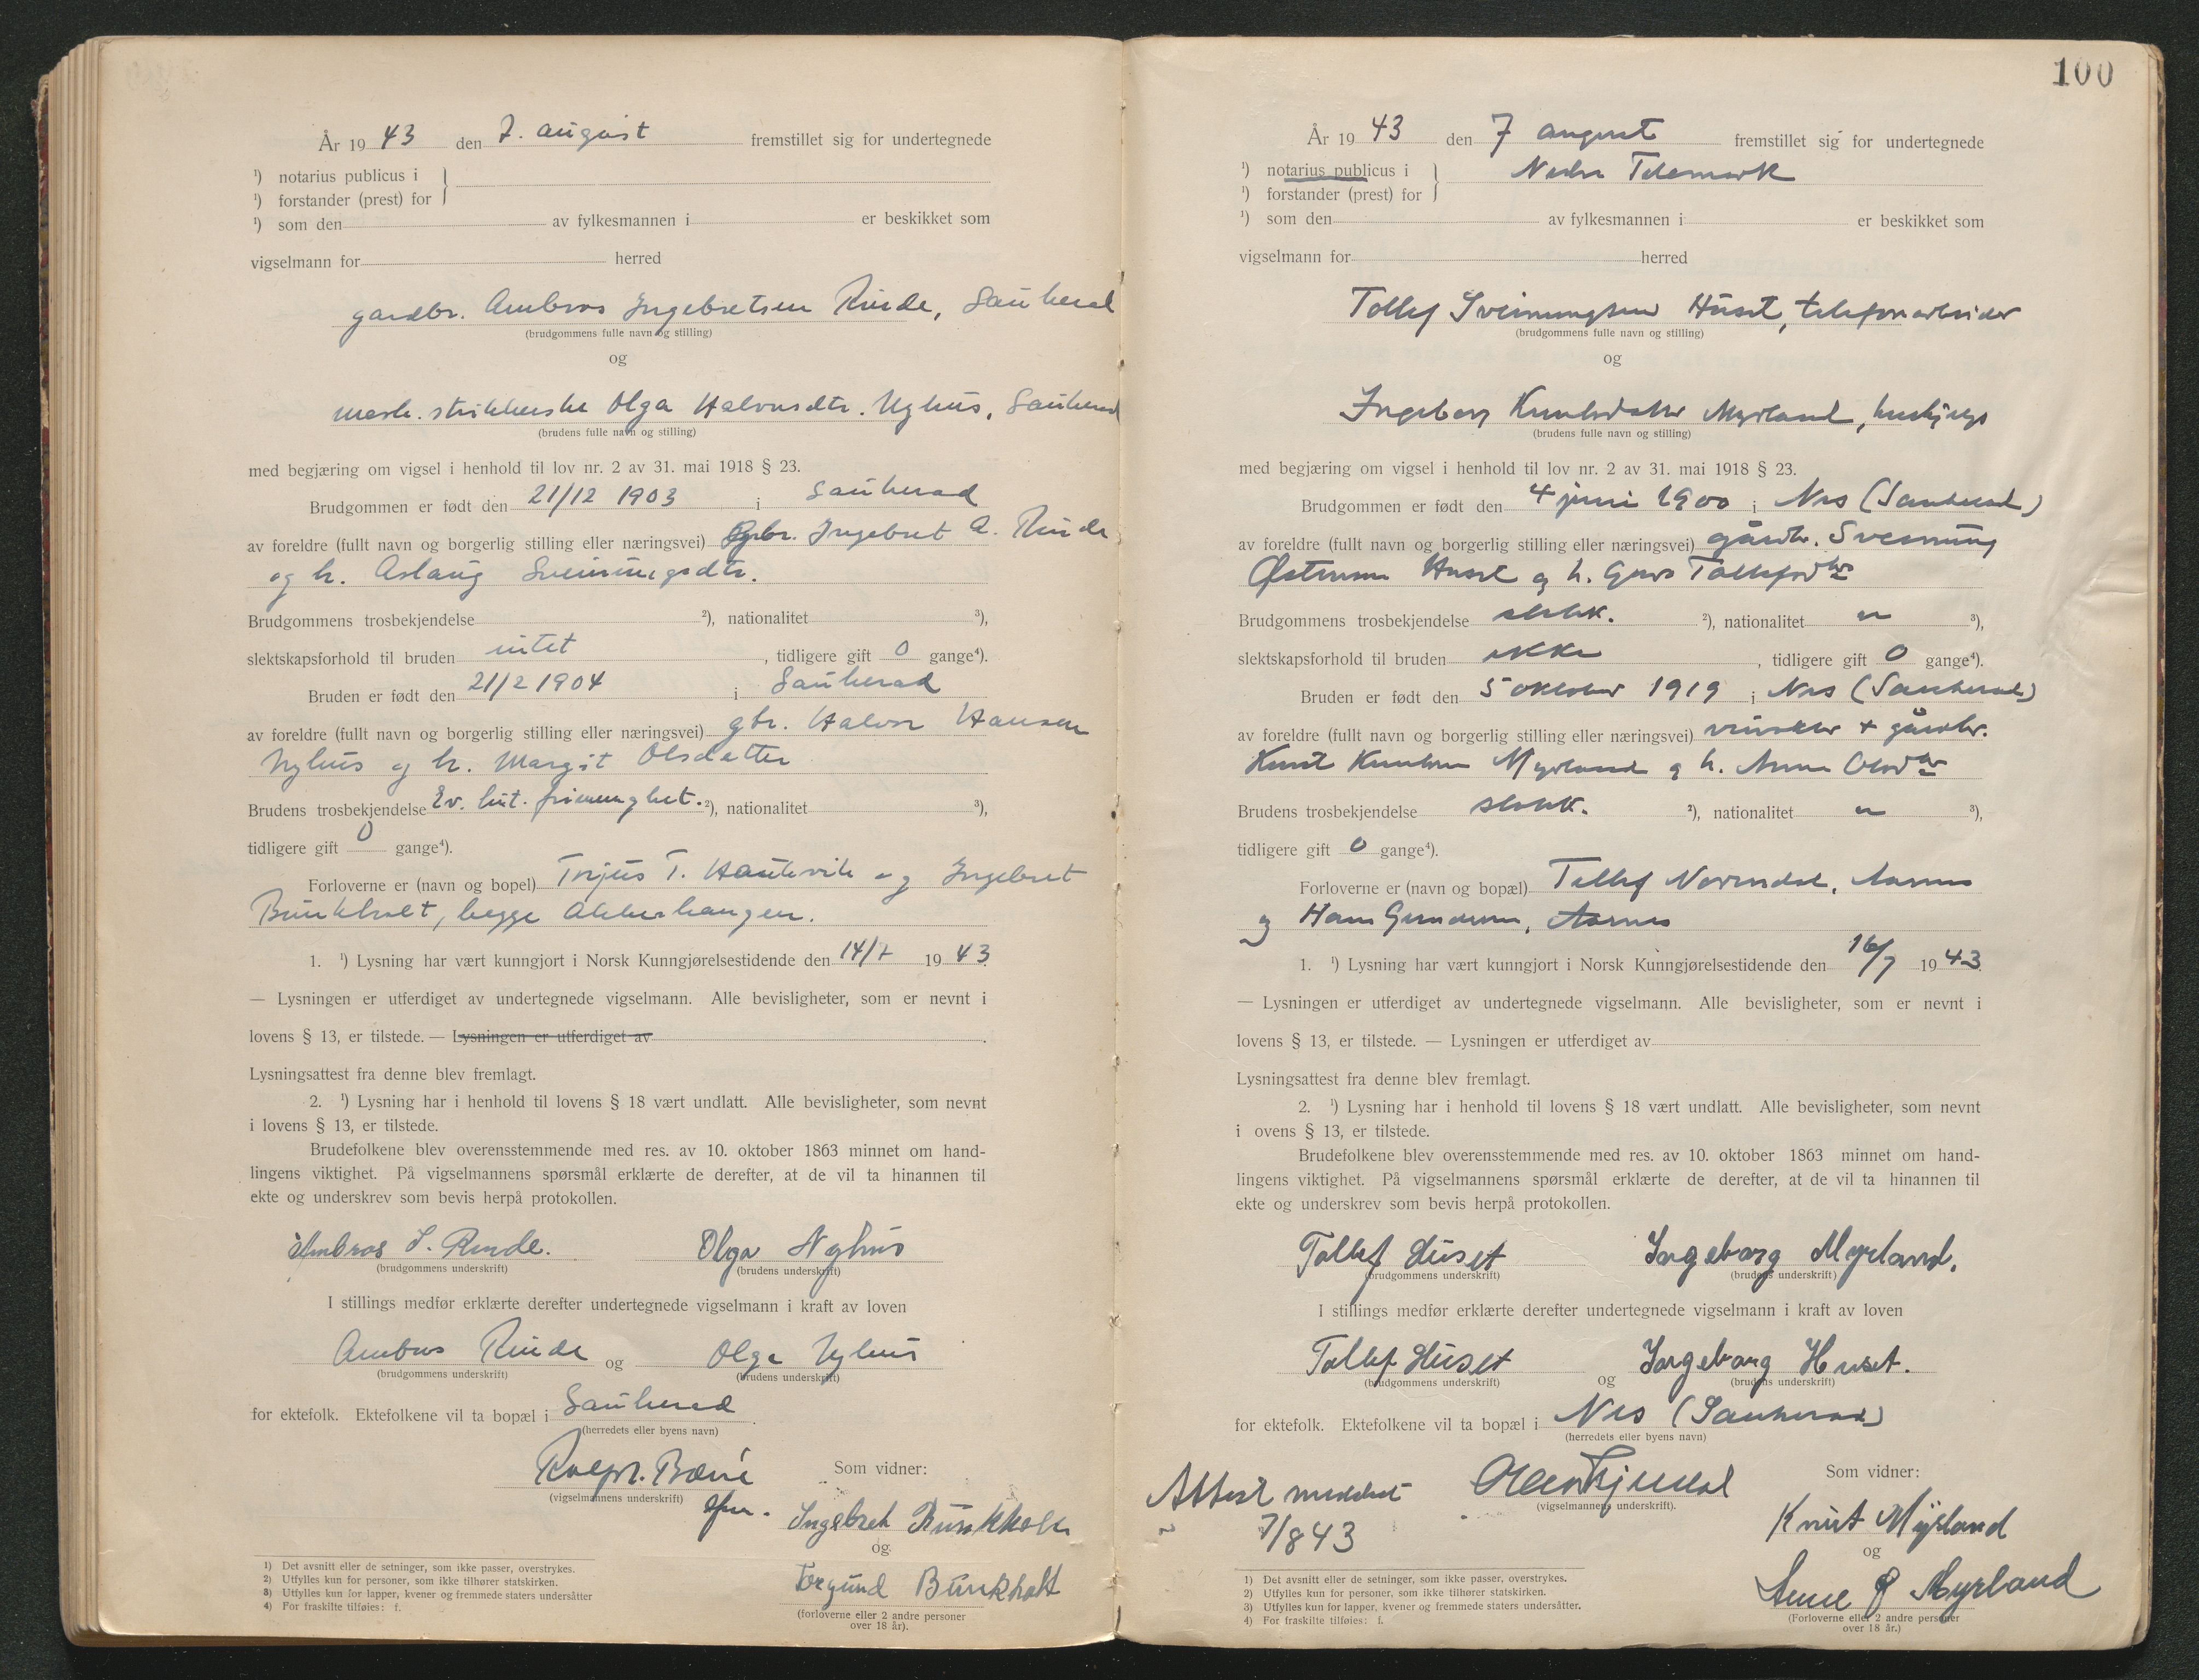 År 19 43 den 7. august fremstillet sig for undertegnede
¹) notarius publicus i
¹) forstander (prest) for
¹) som den av fylkesmannen i er beskikket som
vigselmann for herred
gardbr. Ambros Ingebretsen Rinde, Sauherad
(brudgommens fulle navn og stilling)
og
mask. strikkerske Olga Halvorsdtr. Nyhus, Sauherad
(brudens fulle navn og stilling)
med begjæring om vigsel i henhold til lov nr. 2 av 31. mai 1918 § 23.
Brudgommen er født den 21/12 1903 i Sauherad
av foreldre (fullt navn og borgerlig stilling eller næringsvei) gbr. Ingebret A. Rinde
og h. Aslaug Sveinungsdtr.
Brudgommens trosbekjendelse ²), nationalitet ³),
slektskapsforhold til bruden intet, tidligere gift 0 gange⁴).
Bruden er født den 21/2 1904 i Sauherad
av foreldre (fullt navn og borgerlig stilling eller næringsvei) gbr. Halvor Hansen
Nyhus og h. Margit Olsdatter
Brudens trosbekjendelse Ev. lut. frimenighet. ²), nationalitet ³),
tidligere gift 0 gange⁴).
Forloverne er (navn og bopel) Torjus T. Haukvik og Ingebret
Bunkholt, begge Akkerhaugen.
1. ¹) Lysning har vært kunngjort i Norsk Kunngjørelsestidende den 14/7 19 43.
— Lysningen er utferdiget av undertegnede vigselmann. Alle bevisligheter, som er nevnt i
lovens § 13, er tilstede. — Lysningen er utferdiget av .
Lysningsattest fra denne blev fremlagt.
2. ¹) Lysning har i henhold til lovens § 18 vært undlatt. Alle bevisligheter, som nevnt
i lovens § 13, er tilstede.
Brudefolkene blev overensstemmende med res. av 10. oktober 1863 minnet om hand-
lingens viktighet. På vigselmannens spørsmål erklærte de derefter, at de vil ta hinannen til
ekte og underskrev som bevis herpå protokollen.
Ambros I. Rinde. Olga Nyhus
(brudgommens underskrift) (brudens underskrift)
I stillings medfør erklærte derefter undertegnede vigselmann i kraft av loven
Ambros Rinde og Olga Nyhus
(brudgommens underskrift) (brudens underskrift)
for ektefolk. Ektefolkene vil ta bopæl i Sauherad .
(herredets eller byens navn)
Som vidner:
(vigselmannens underskrift)
Ingebret Bunkholt
og
Torgund Bunkholt
(forloverne eller 2 andre personer
over 18 år).
1) Det avsnitt eller de setninger, som ikke passer, overstrykes.
2) Utfylles kun for personer, som ikke tilhører statskirken.
3) Utfylles kun for lapper, kvener og fremmede staters undersåtter
4) For fraskilte tilføies: f.
100
År 19 43 den 7 august fremstillet sig for undertegnede
¹) notarius publicus i Nedre Telemark
¹) forstander (prest) for
¹) som den av fylkesmannen i er beskikket som
vigselmann for herred
Tollef Sveinungsen Huset, telefonarbeider
(brudgommens fulle navn og stilling)
og
Ingeborg Knutsdatter Myrland, hushjelp
(brudens fulle navn og stilling)
med begjæring om vigsel i henhold til lov nr. 2 av 31. mai 1918 § 23.
Brudgommen er født den 4 juni 1900 i Nes (Sauherad)
av foreldre (fullt navn og borgerlig stilling eller næringsvei) gårdbr. Sveinung
Huset og h. Tollefsdtr
Brudgommens trosbekjendelse stskk. ²), nationalitet n ³),
slektskapsforhold til bruden ikke, tidligere gift 0 gange⁴).
Bruden er født den 5 oktober 1919 i Nes (Sauherad)
av foreldre (fullt navn og borgerlig stilling eller næringsvei) + gårdbr.
Knut Knutsen Myrland og h. Anne Olsdtr
Brudens trosbekjendelse stskk. ²), nationalitet n ³),
tidligere gift 0 gange⁴).
Forloverne er (navn og bopæl) Tellef Aarnes
og Hans Gundersen, Aarnes
1. ¹) Lysning har vært kunngjort i Norsk Kunngjørelsestidende den 16/7 19 43.
— Lysningen er utferdiget av undertegnede vigselmann. Alle bevisligheter, som er nevnt i
lovens § 13, er tilstede. — Lysningen er utferdiget av
Lysningsattest fra denne blev fremlagt.
2. ¹) Lysning har i henhold til lovens § 18 vært undlatt. Alle bevisligheter, som nevnt
i ovens § 13, er tilstede.
Brudefolkene blev overensstemmende med res. av 10. oktober 1863 minnet om hand-
lingens viktighet. På vigselmannens spørsmål erklærte de derefter, at de vil ta hinannen til
ekte og underskrev som bevis herpå protokollen.
Tollef Huset Ingeborg Myrland.
(brudgommens underskrift) (brudens underskrift)
I stillings medfør erklærte derefter undertegnede vigselmann i kraft av loven
Tollef Huset og Ingeborg Huset.
(brudgommens underskrift) (brudens underskrift)
for ektefolk. Ektefolkene vil ta bopæl i Nes (Sauherad)
(herredets eller byens navn)
Attest meddelt
7/8 43
(vigselmannens underskrift).
Som vidner:
Knut Myrland
og
Anne O Myrland
(Forloverne eller 2 andre personer
over 18 år.)
1) Det avsnitt eller de setninger, som ikke passer, overstrykes.
2) Utfylles kun for personer, som ikke tilhører statskirken.
3) Utfylles kun for lapper, kvener og fremmede staters undersåtter.
4) For fraskilte tilføies: f.